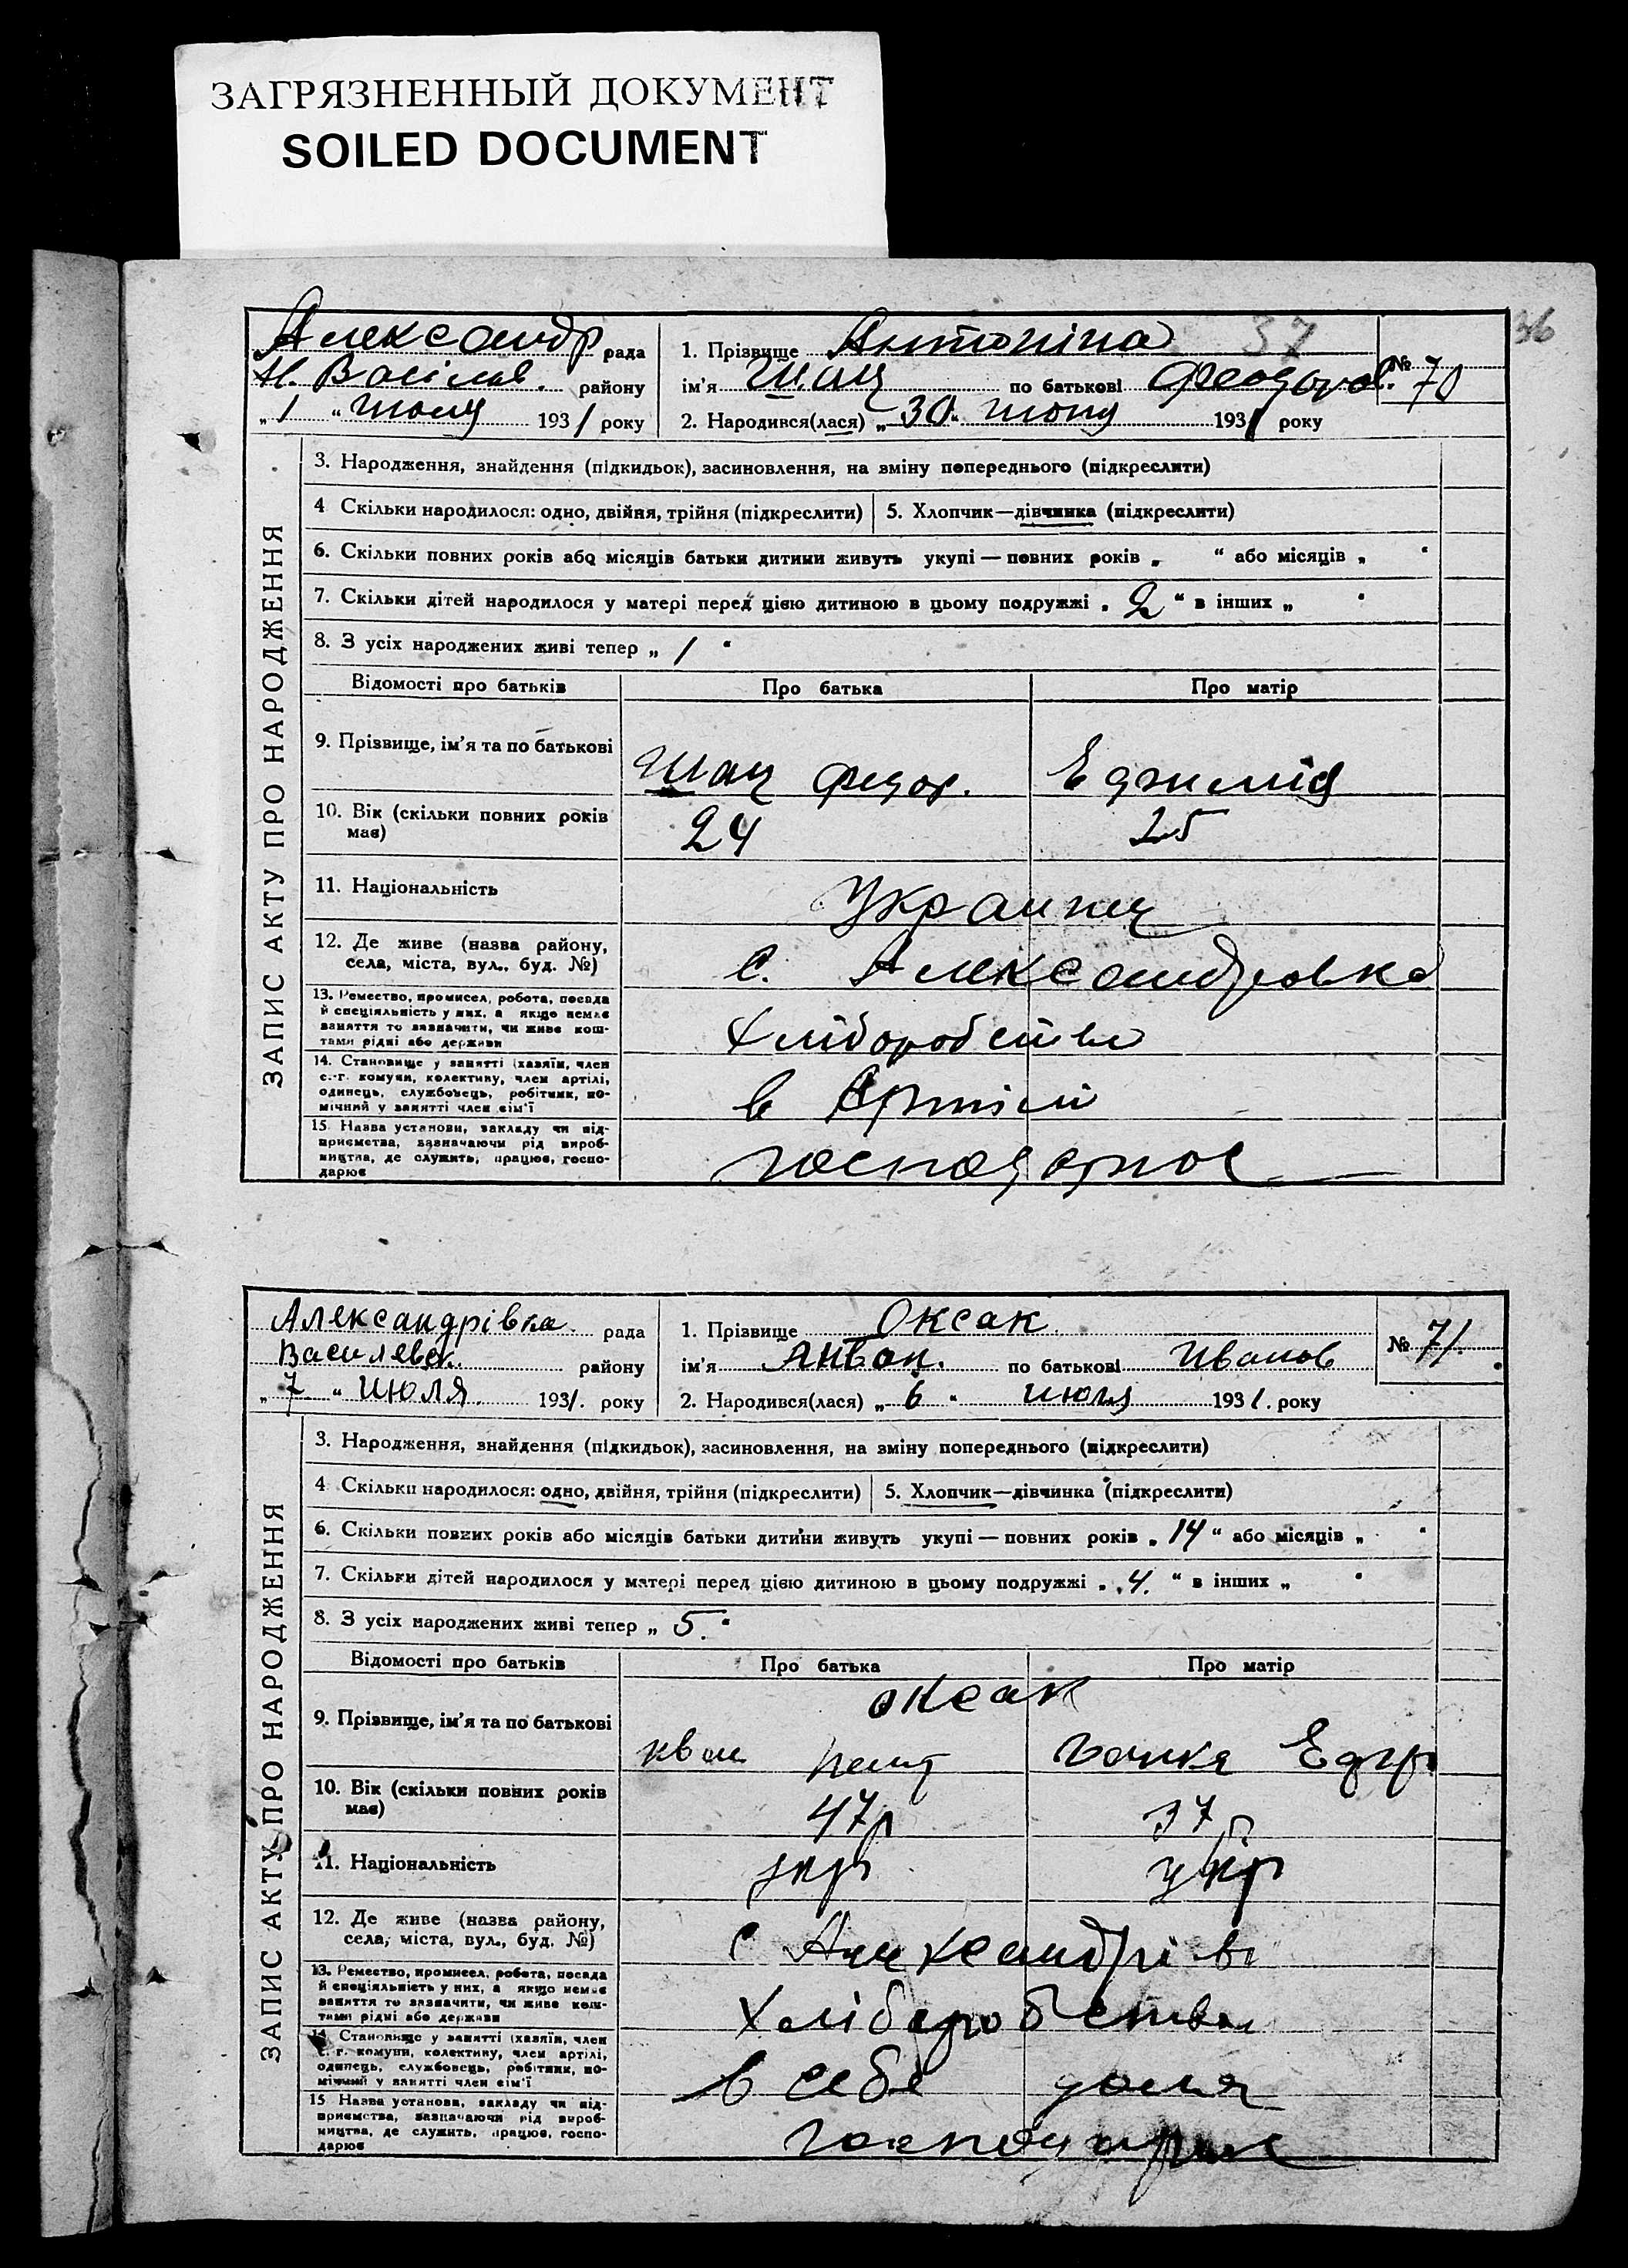 ЗАГРЯЗНЕННЫЙ ДОКУМЕНТ
SOILED DOCUMENT
36
37
Александр рада
Н. Васілів. району
„1“ 1931 року
1. Прізвище Антоніна
ім'я Шац по батькові Феодоров.
№ 70
2. Народився(лася) „30“ 1931 року
ЗАПИС АКТУ ПРО НАРОДЖЕННЯ
3. Народження, знайдення (підкидьок), засиновлення, на зміну попереднього (підкреслити)
4 Скільки народилося: одно, двійня, трійня (підкреслити)
5. Хлопчик—дівчинка (підкреслити)
6. Скільки повних років або місяців батьки дитини живуть укупі — повних років „ “ або місяців „ “
7. Скільки дітей народилося у матері перед цією дитиною в цьому подружжі „2“ в інших „ “
8. З усіх народжених живі тепер „1“
Відомості про батьків Про батька Про матір
9. Прізвище, ім'я та по батькові
Шац Федор.
10. Вік (скільки повних років має)
24 25
11. Національність
Украинц
12. Де живе (назва району, села, міста, вул., буд. №)
с. Александровка
13. Ремество, промисел, робота, посада й спеціяльність у них, а якщо немає заняття то зазначити, чи живе коштами рідні або держави
Хліборобство
14. Становище у занятті (хазяїн, член с.-г. комуни, колективу, член артілі, одинець, службовець, робітник, помічний у занятті член сім'ї
в Артілі
15. Назва установи, закладу чи підприємства, зазначаючи рід виробництва, де служить, працює, господарює
господарює
Александрівка рада
Василевск. району
„7“ июля 1931. року
1. Прізвище Оксак
ім'я Антон. по батькові Иванов
№ 71.
2. Народився(лася) „6“ июля 1931. року
ЗАПИС АКТУ ПРО НАРОДЖЕННЯ
3. Народження, знайдення (підкидьок), засиновлення, на зміну попереднього (підкреслити)
4 Скільки народилося: одно, двійня, трійня (підкреслити)
5. Хлопчик—дівчинка (підкреслити)
6. Скільки повних років або місяців батьки дитини живуть укупі — повних років „14“ або місяців „ “
7. Скільки дітей народилося у матері перед цією дитиною в цьому подружжі „4.“ в інших „ “
8. З усіх народжених живі тепер „5.“
Відомості про батьків Про батька Про матір
9. Прізвище, ім'я та по батькові
Оксак
10. Вік (скільки повних років має)
47р 37р
11. Національність
укр укр
12. Де живе (назва району, села, міста, вул., буд. №)
с Александрівк
13. Ремество, промисел, робота, посада й спеціяльність у них, а якщо немає заняття то зазначити, чи живе коштами рідні або держави
Хліборобство
14. Становище у занятті (хазяїн, член с.-г. комуни, колективу, член артілі, одинець, службовець, робітник, помічний у занятті член сім'ї
в себе дома
15 Назва установи, закладу чи підприємства, зазначаючи рід виробництва, де служить, працює, господарює
господарює